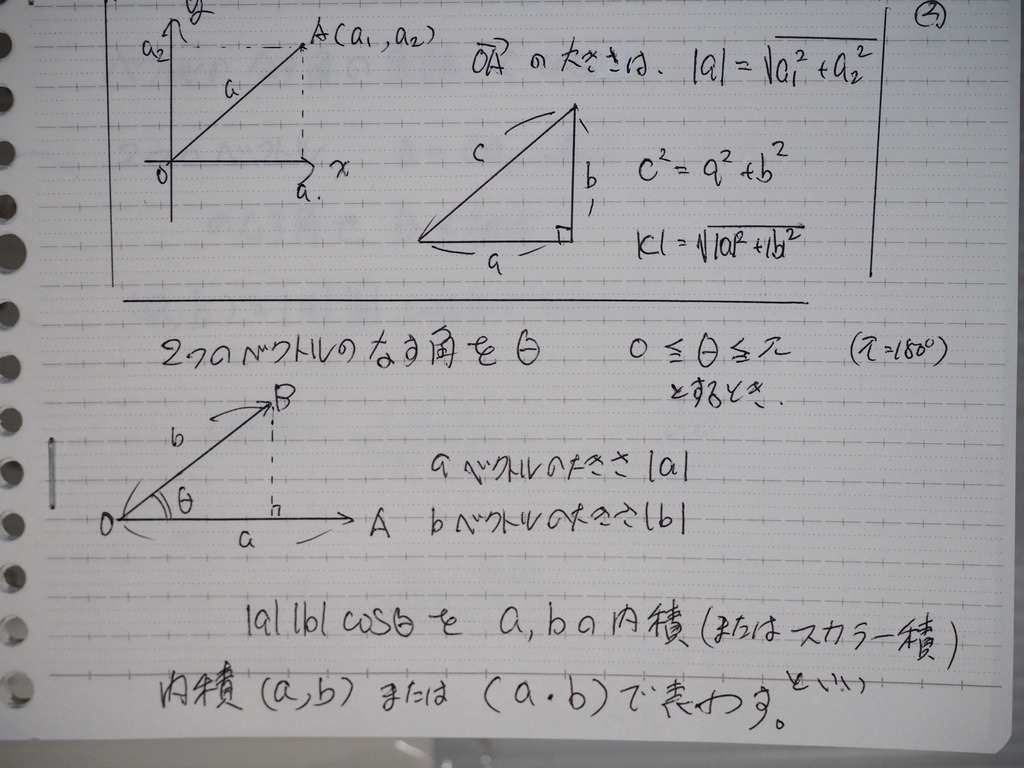 ③
y
a₂
A(a₁, a₂)
a
O
a.
x
OA→ の大きさは. |a| = √a₁² + a₂²
c
b
a
c² = a² + b²
|c| = √|a|² + |b|²
2つのベクトルのなす角を θ 0 ≦ θ ≦ π (π=180°)
とするとき.
B
b
θ
O
a
A
a ベクトルの大きさ |a|
b ベクトルの大きさ |b|
|a| |b| cosθ を a, b の内積 (またはスカラー積)
といい
内積 (a, b) または (a・b) で表わす。